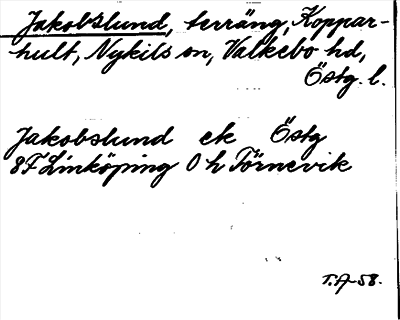 Jakobslund, terräng, Koppar-
hult, Nykils sn, Valkebo hd,
Östg. l.
Jakobslund ek Östg
8F Linköping 0 h Törnevik
T.A-58.